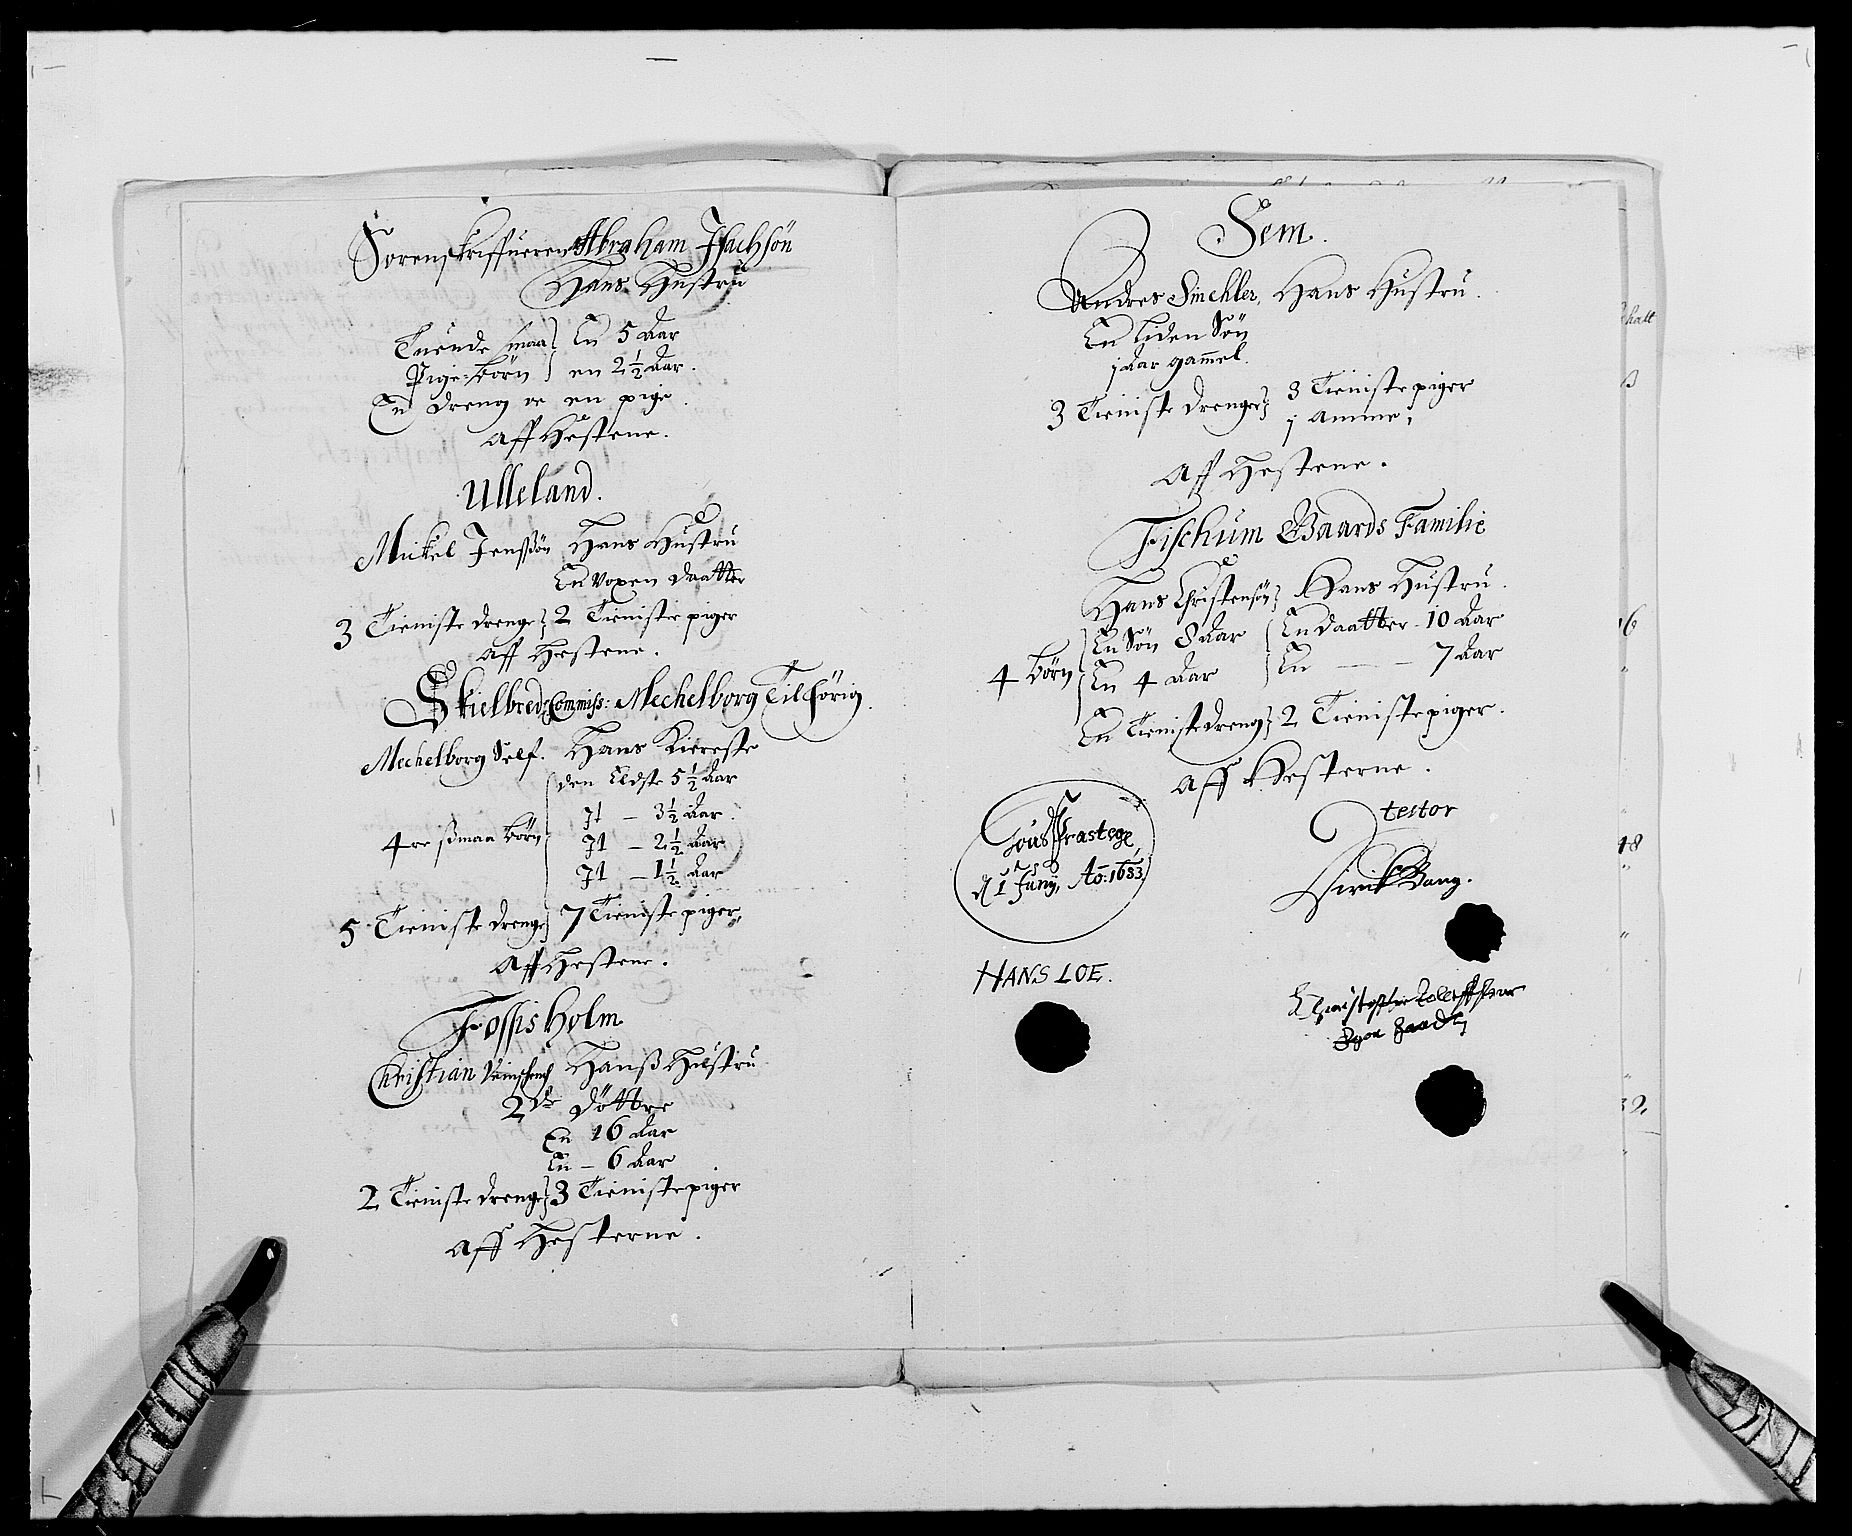 Sorenskriffueren Abraham Jsachsön
Hans Hustru
Tuende smaa } En 5 Aar
Pige-börn } en 2½ Aar.
En dreng oc en pige.
Aff Hestene.
Ulleland.
Mickel Jenssön Hans Hustru
En voxen daatter
3 Tieniste drenge } 2 Tieniste piger
Aff Hestene.
Skielbred Commiss: Mechelborg Tilhörig.
Mechelborg Self. Hans Kiereste
den Eldste 5½ Aar
Jt - 3½ Aar.
4re ßmaa börn Jt - 2½ Aar
Jt - 1½ Aar
5 Tieniste drenge } 7 Tieniste piger,
Aff Hestene.
Fossisholm
Christian Hanß Hustru
2de döttre
En 16 Aar
En - 6 Aar
2 Tieniste drenge } 3 Tieniste piger
Aff Hesterne.
Sem.
Andres Sinchler, Hans Hustru.
En liden Sön
j Aar gammel.
3 Tieniste drenge } 3 Tieniste piger
j Amme,
Aff Hestene.
Fischum Gaards Familie
Hans Christensön } Hans Hustru.
En Sön 8 Aar { En daatter - 10 Aar
4 börn { En 4 Aar { En - - 7 Aar
En Tieniste dreng } 2 Tieniste piger.
Aff Hesterne.
testor
d 1 Junij, Ao: 1683
Eirik Bang.
HANS LOE.